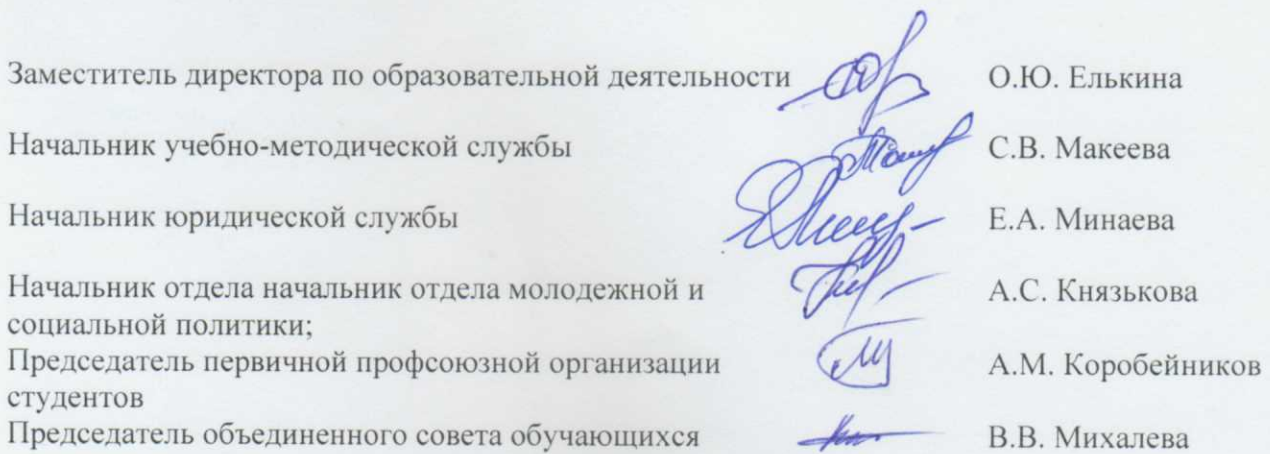 Заместитель директора по образовательной деятельности О.Ю. Елькина
Начальник учебно-методической службы С.В. Макеева
Начальник юридической службы Е.А. Минаева
Начальник отдела начальник отдела молодежной и А.С. Князькова
социальной политики;
Председатель первичной профсоюзной организации А.М. Коробейников
студентов
Председатель объединенного совета обучающихся В.В. Михалева